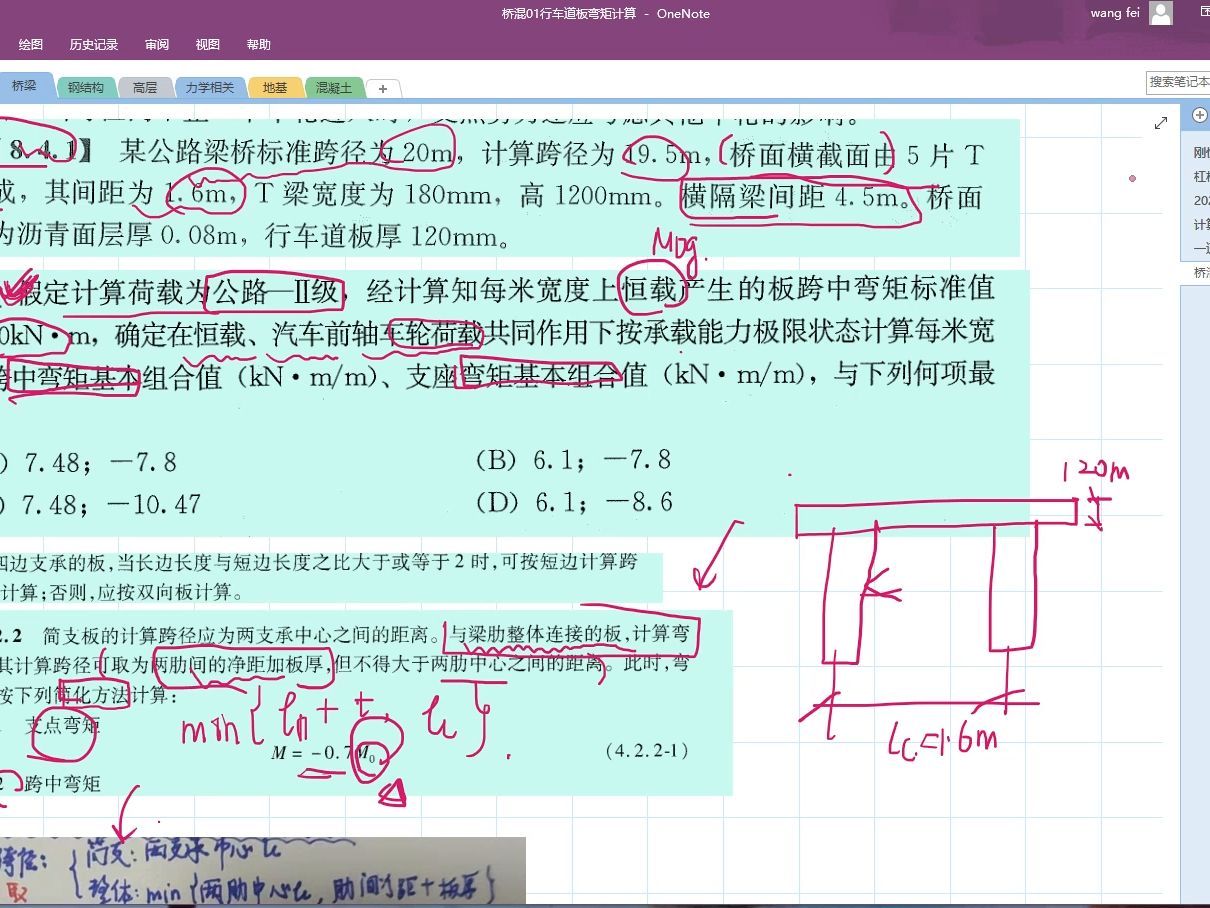 桥混01行车道板弯矩计算 - OneNote
wang fei
绘图 历史记录 审阅 视图 帮助
桥梁 钢结构 高层 力学相关 地基 混凝土 +
搜索笔记本
8.4.1】 某公路梁桥标准跨径为 20m，计算跨径为 19.5m，(桥面横截面由 5 片 T
成，其间距为 1.6m，T 梁宽度为 180mm，高 1200mm。横隔梁间距 4.5m。桥面
为沥青面层厚 0.08m，行车道板厚 120mm。
M0g.
假定计算荷载为公路—Ⅱ级，经计算知每米宽度上恒载产生的板跨中弯矩标准值
0kN·m，确定在恒载、汽车前轴车轮荷载共同作用下按承载能力极限状态计算每米宽
跨中弯矩基本组合值（kN·m/m）、支座弯矩基本组合值（kN·m/m），与下列何项最
) 7.48；－7.8 (B) 6.1；－7.8
) 7.48；－10.47 (D) 6.1；－8.6
120m
四边支承的板，当长边长度与短边长度之比大于或等于 2 时，可按短边计算跨
计算；否则，应按双向板计算。
.2.2 简支板的计算跨径应为两支承中心之间的距离。与梁肋整体连接的板，计算弯
其计算跨径可取为两肋间的净距加板厚，但不得大于两肋中心之间的距离。此时，弯
按下列简化方法计算：
支点弯矩
min{ln+t, lc}.
M = －0.7M0 (4.2.2-1)
lc=1.6m
2 跨中弯矩
跨径：{简支：两支承中心lc
取 整体：min{两肋中心lc，肋间净距+板厚}
刚
杠
202
计
一
桥